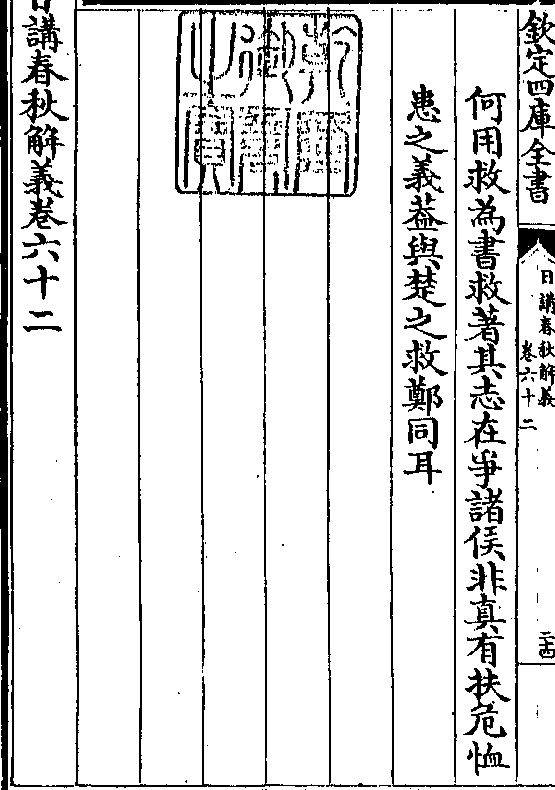 欽定四庫全書
日講春秋解義
卷六十二
二十四
何用救為書救著其志在爭諸侯非真有扶危恤
患之義葢與楚之救鄭同耳
乾隆御覽之寶
日講春秋解義卷六十二